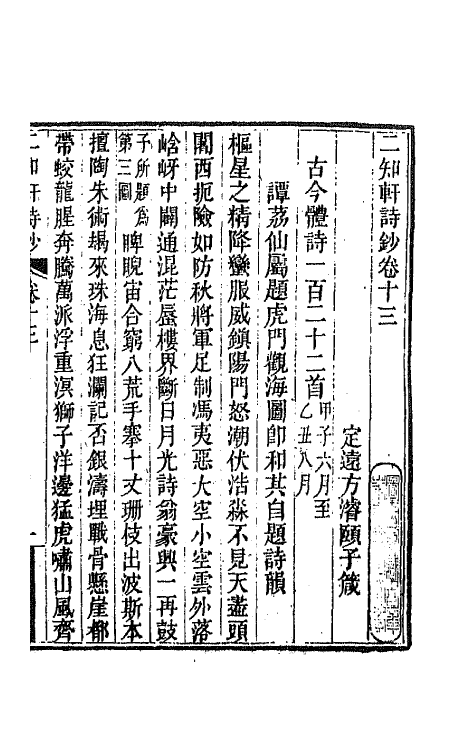 二知軒詩鈔卷十三
定遠方濬頤子箴
古今體詩一百二十二首甲子六月至
乙丑八月
譚荔仙屬題虎門觀海圖即和其自題詩韻
樞星之精降蠻服威鎭陽門怒潮伏浩淼不見天盡頭
閣西扼險如防秋將軍足制馮夷惡大空小空雲外落
峆岈中闢通混茫蜃樓界斷日月光詩翁豪興一再鼓
子所題為
第三圖
睥睨宙合窮八荒手搴十丈珊枝出波斯本
擅陶朱術朅來珠海息狂瀾記否銀濤埋戰骨懸崖都
帶蛟龍腥奔騰萬派浮重溟獅子洋邊猛虎嘯山風齊
二知軒詩鈔
卷十三
一